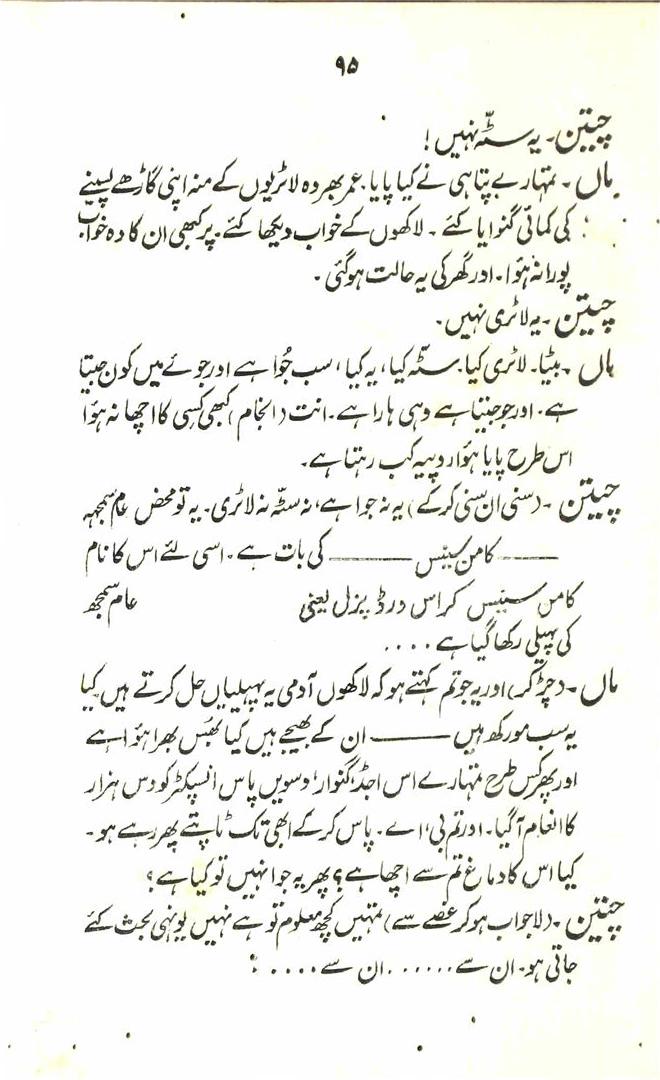 ۹۵
چیتن۔ یہ سٹّہ نہیں!
ماں۔ تمہارے پتا ہی نے کیا پایا۔ عمر بھر وہ لاٹریوں کے منہ اپنی گاڑھے پسینے
کی کمائی گنوایا کئے۔ لاکھوں کے خواب دیکھا کئے۔ پر کبھی ان کا وہ خواب
پورا نہ ہؤا۔ اور گھر کی یہ حالت ہو گئی۔
چیتن۔ یہ لاٹری نہیں۔
ماں۔ بیٹا۔ لاٹری کیا۔ سٹّہ کیا، یہ کیا، سب جُوا ہے اور جوئے میں کون جیتا
ہے۔ اور جو جیتتا ہے وہی ہارا ہے۔ انت (انجام) کبھی کسی کا اچھا نہ ہؤا
اس طرح پایا ہؤا روپیہ کب رہتا ہے۔
چیتن۔ (سنی ان سنی کر کے) یہ نہ جوا ہے، نہ سٹّہ نہ لاٹری۔ یہ تو محض عام سمجھ
—— کامن سینس —— کی بات ہے۔ اسی لئے اس کا نام
کامن سینس کراس ورڈ پزل یعنی عام سمجھ
کی پہیلی رکھا گیا ہے ....
ماں۔ (چڑ کر) اور یہ جو تم کہتے ہو کہ لاکھوں آدمی یہ پہیلیاں حل کرتے ہیں کیا
یہ سب مورکھ ہیں —— ان کے بھیجے میں کیا بھُس بھرا ہؤا ہے
اور پھر کس طرح تمہارے اس اجڈ، گنوار، دسویں پاس انسپکٹر کو دس ہزار
کا انعام آ گیا۔ اور تم بی، اے۔ پاس کر کے ابھی تک ٹاپتے پھر رہے ہو۔
کیا اس کا دماغ تم سے اچھا ہے؟ پھر یہ جوا نہیں تو کیا ہے؟
چیتن۔ (لاجواب ہو کر غصے سے) تمہیں کچھ معلوم تو ہے نہیں یونہی بحث کئے
جاتی ہو۔ ان سے ...... ان سے ....: